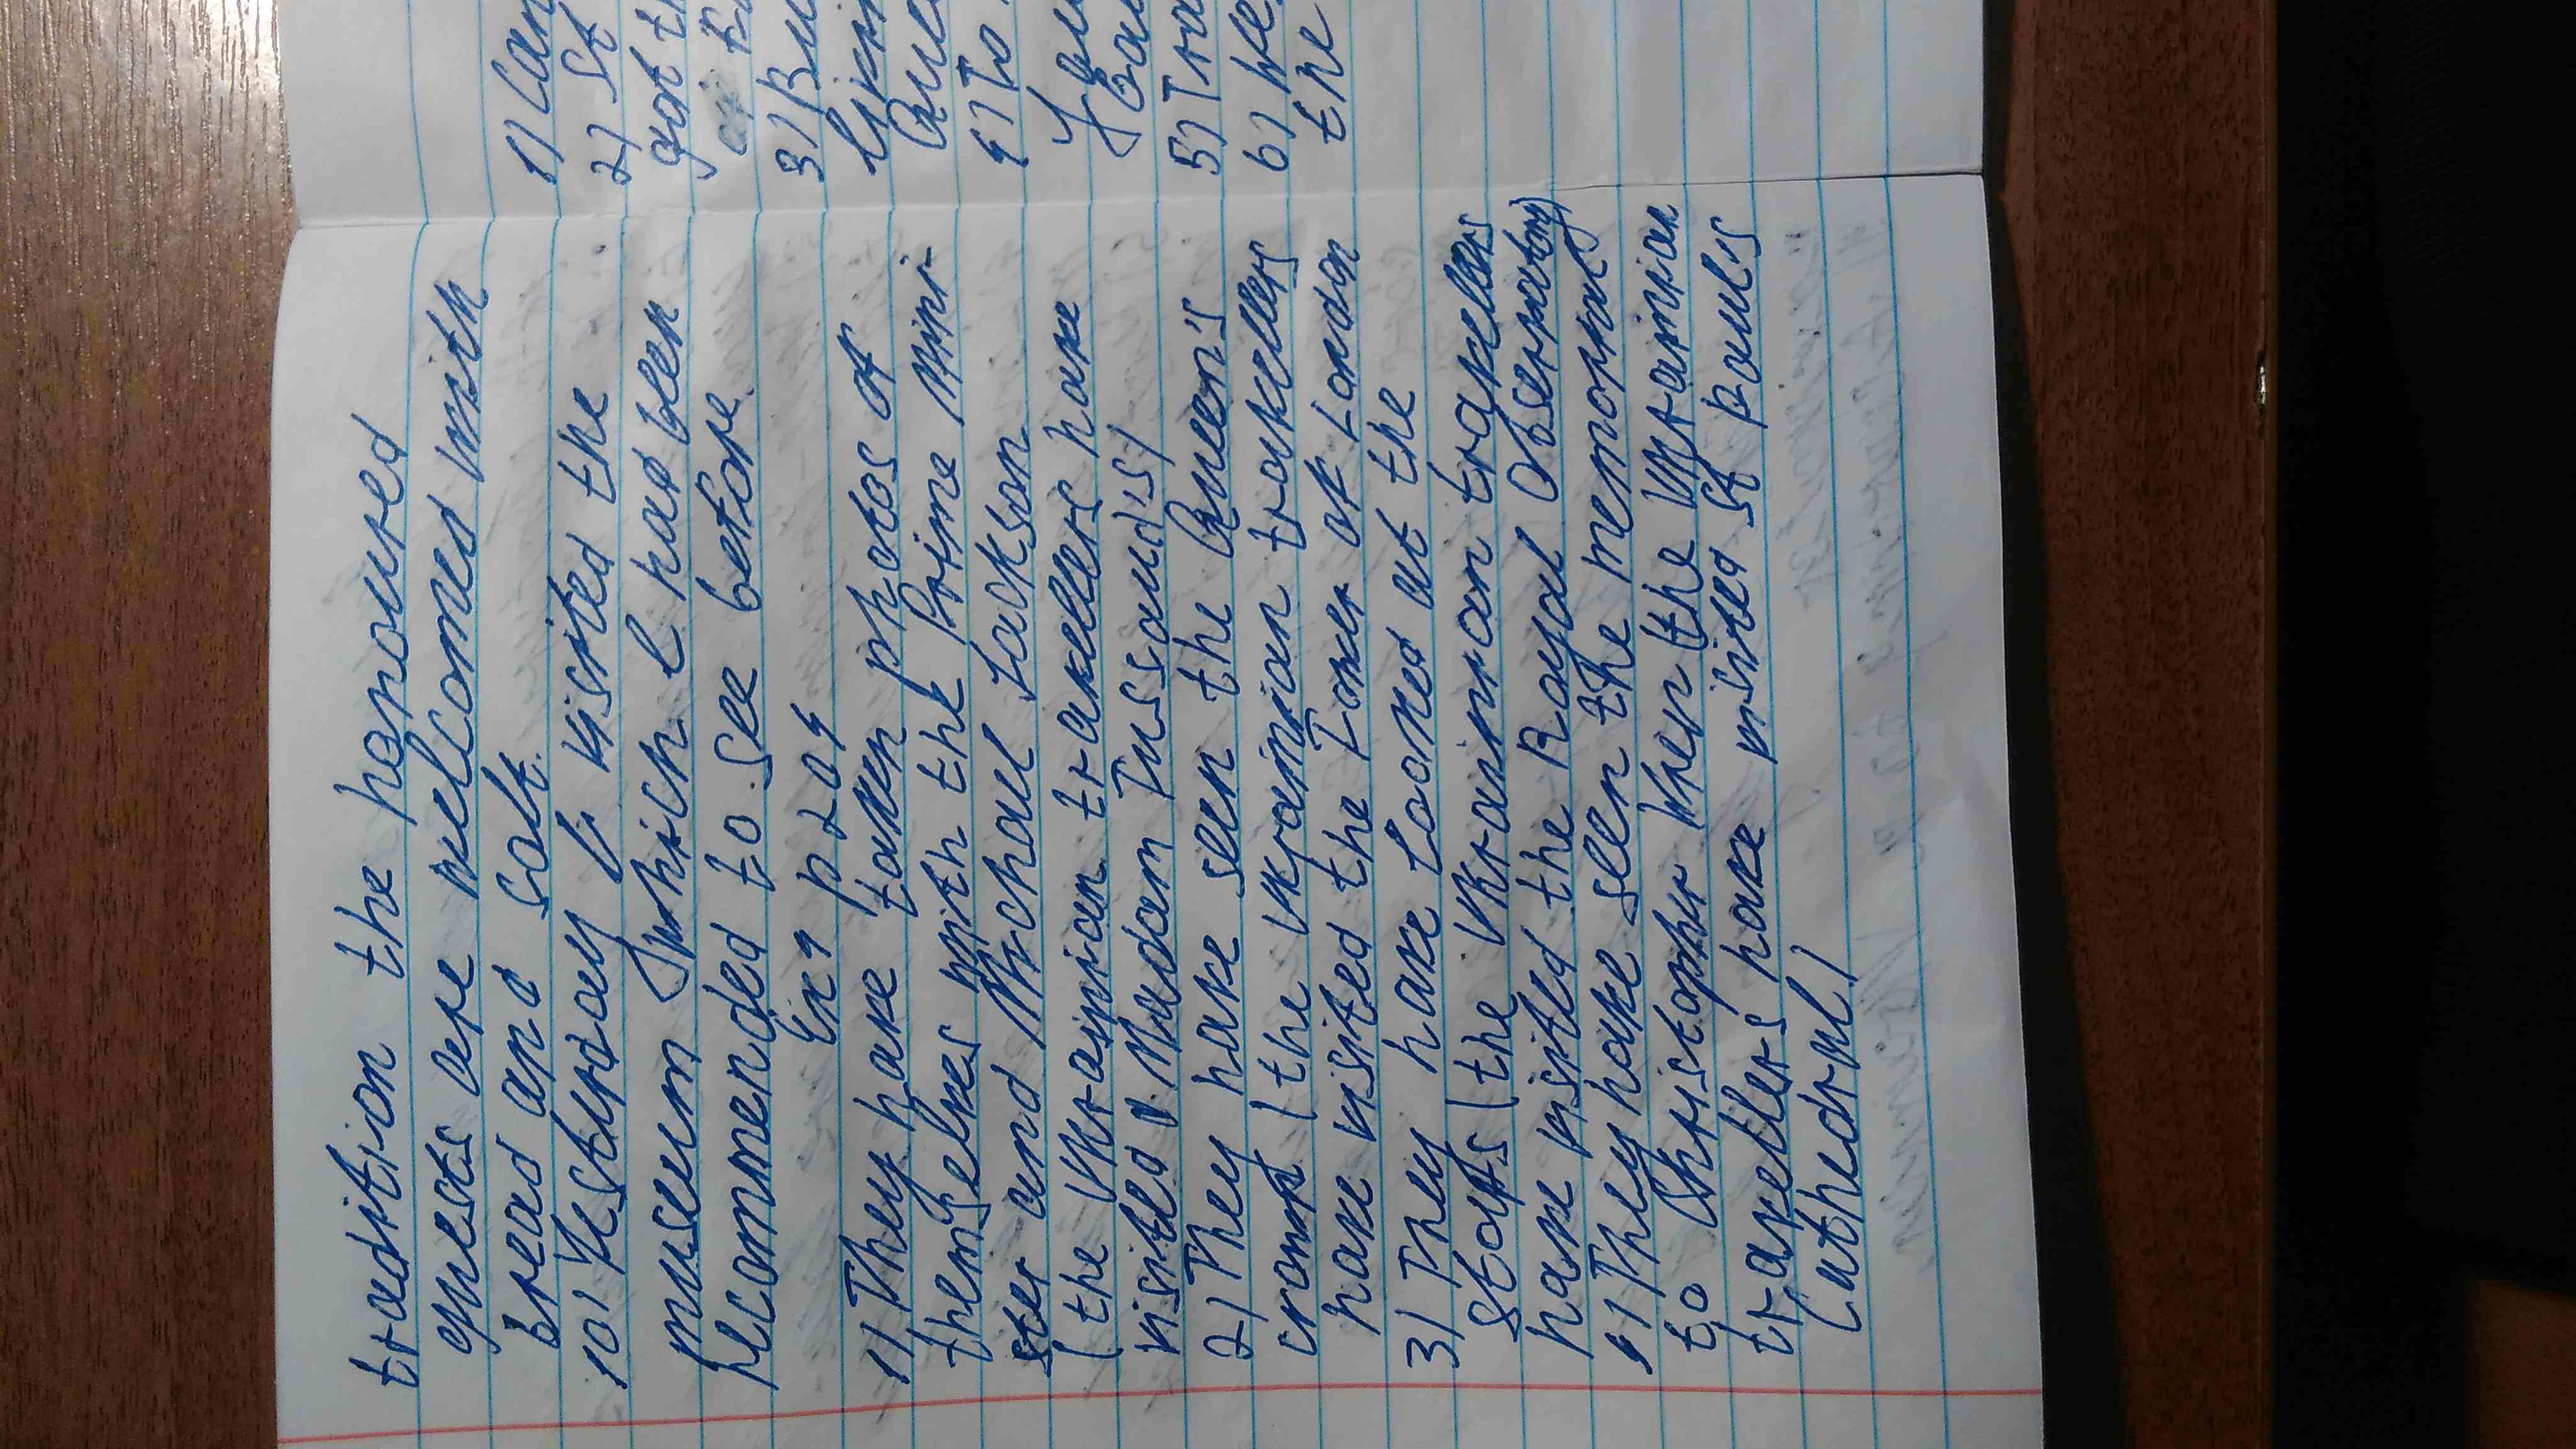 tradition the honoured
guests are welcomed with
bread and salt.
10) Yesturday I visited the
museum which I had been
recommended to see before.
Ex 9 p 204
1) They have taken photos of
themselves with the Prime Mini-
ster and Michael Jackson
(the Ukrainian travellers have
visited Madam Tussaud's)
2) They have seen the Queen's
crown (the Ukrainian travellers
have visited the Tower of London
3) They have looked at the
stars (the Ukrainian travellers
have visited the Royal Observatory)
4) They have seen the memorial
to Christopher Wren (the Ukrainian
travellers have visited St Paul's
Cathedral)
1) Can
2) St
got th
3) Bu
livin
Quee
4) To
5) Tra
6) We
the